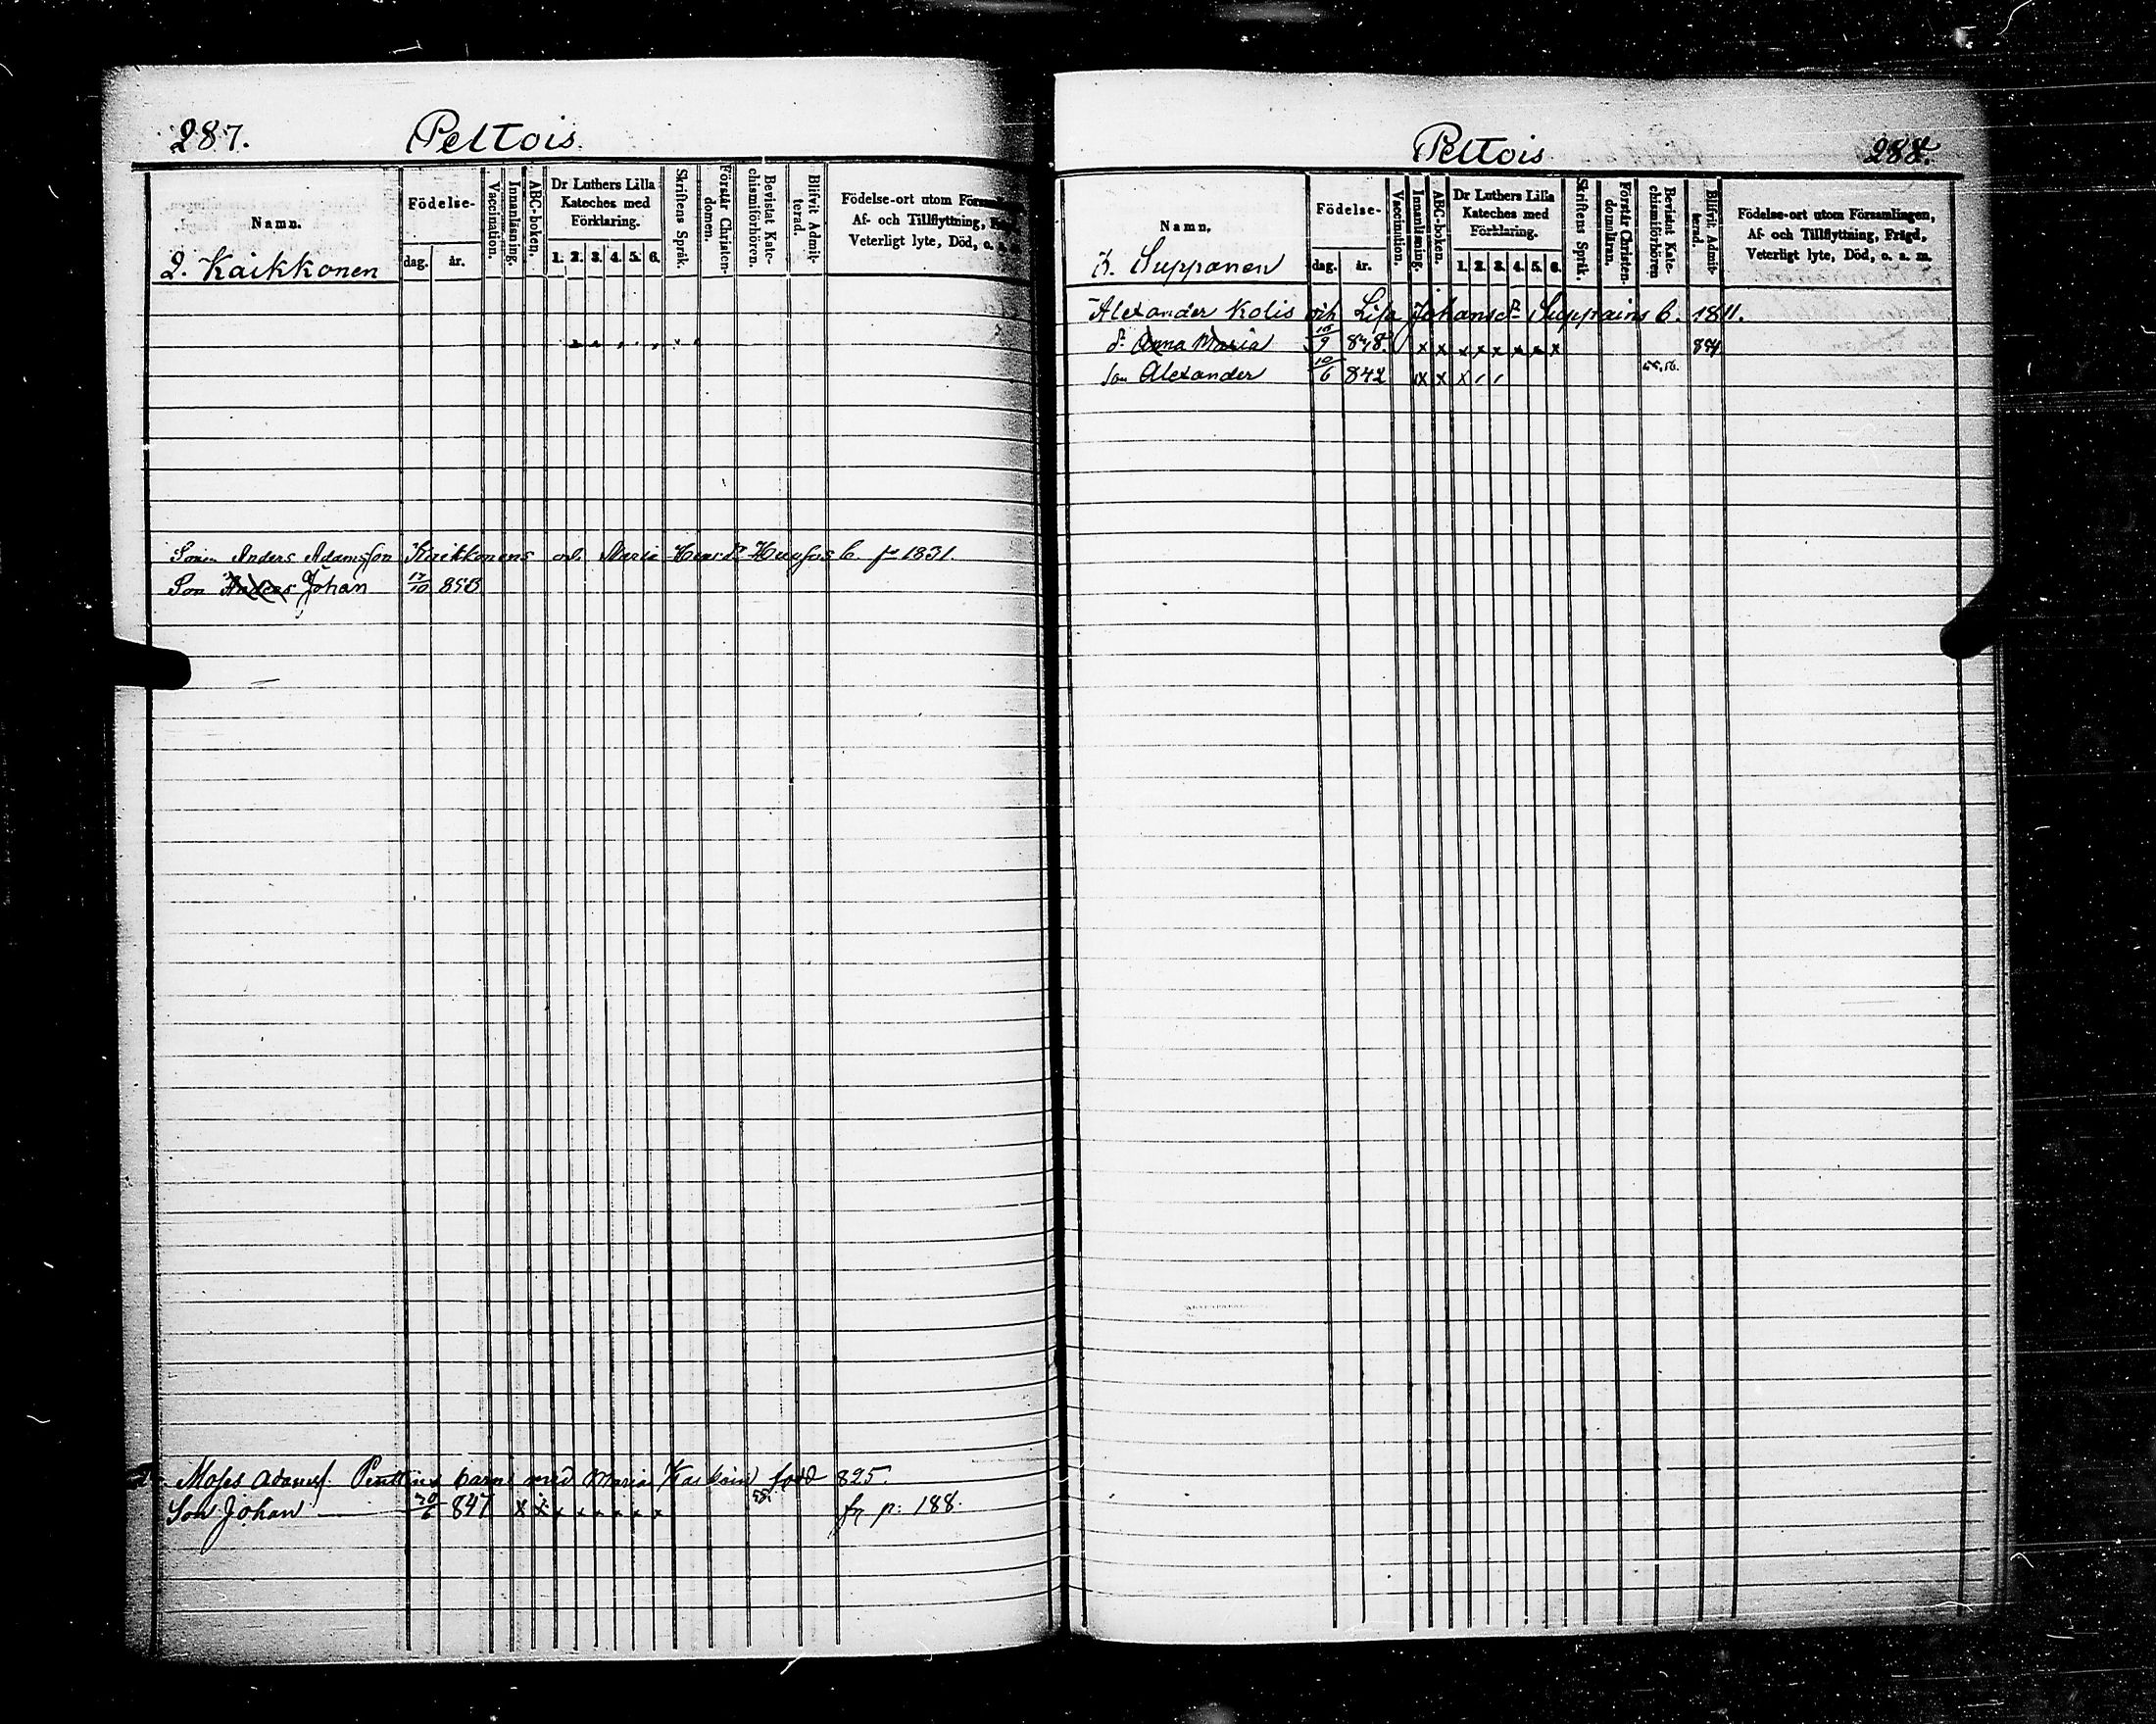 287. Peltois.
Namn.
Födelse-
dag. år.
Vaccination.
Innanläsning.
ABC-boken.
Dr Luthers Lilla
Kateches med
Förklaring.
1. 2. 3. 4. 5. 6.
Skriftens Språk.
Förstår Christen-
domen.
Bevistat Kate-
chismiförhören.
Blifvit Admit-
terad.
Födelse-ort utom
Af- och Tillflyttning,
Veterligt lyte, Död, o. s. m.
2. Kaikkonen
Anders Adamsson Kaikkonens Maria b. 1831.
Son Anders Johan 17/10 850
Moses Adamsf. Penttins barn med Maria född 825.
Son Johan 20/6 847 x x x x x x x x 55. fr p. 188.
Peltois 288.
Namn.
Födelse-
dag. år.
Vaccination.
Innanläsning.
ABC-boken.
Dr Luthers Lilla
Kateches med
Förklaring.
1. 2. 3. 4. 5. 6.
Skriftens Språk.
Förstår Christen-
domsläran.
Bevistat Kate-
chismiförhören
Blifvit Admit-
terad.
Födelse-ort utom Församlingen,
Af- och Tillflyttning, Frägd,
Veterligt lyte, Död, o. s. m.
3. Suppanen
Alexander Kolis och Lisa Johansdr Suppains b. 1811.
dr Anna Maria 15/9 838. x x x x x x x x 854
son Alexander 10/6 842 x x x / / 55,56.